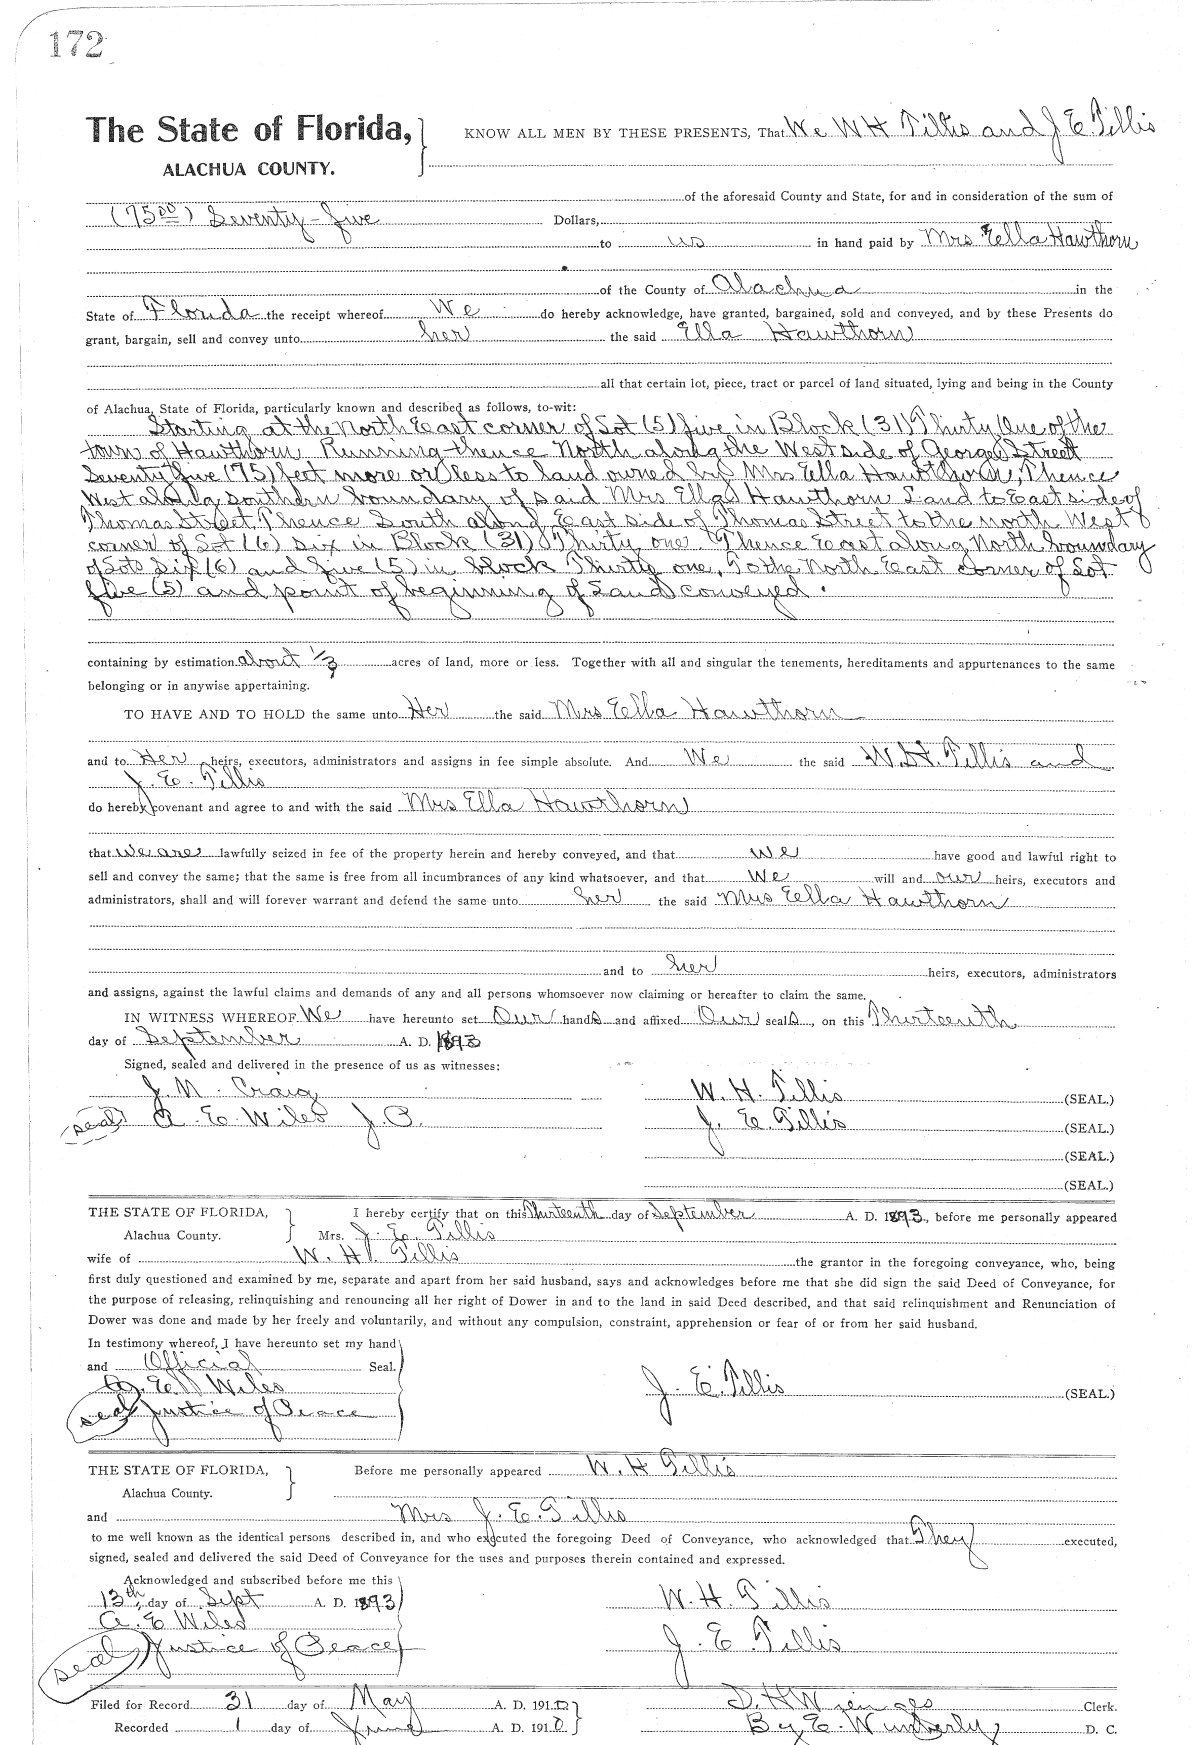 172
The State of Florida, KNOW ALL MEN BY THESE PRESENTS, That We W H Tillis and J E. Tillis
ALACHUA COUNTY.
of the aforesaid County and State, for and in consideration of the sum of
(75 00) Seventy-five Dollars,
to us in hand paid by Mrs Ella Hawthorn
of the County of Alachua in the
State of Florida the receipt whereof We do hereby acknowledge, have granted, bargained, sold and conveyed, and by these Presents do
grant, bargain, sell and convey unto her the said Ella Hawthorn
all that certain lot, piece, tract or parcel of land situated, lying and being in the County
of Alachua, State of Florida, particularly known and described as follows, to-wit:
Starting at the North East corner of Lot (5) five in Block (31) Thirty One of the
town of Hawthorn Running thence North along the West side of Georges Street
Seventy five (75) feet more or less to land owned by Mrs Ella Hawthorn, Thence
West along southern boundary of said Mrs Ella Hawthorn Land to East side of
Thomas Street, Thence South along East side of Thomas Street to the north West
corner of Lot (6) six in Block (31) Thirty one. Thence East along North boundary
of Lots Six (6) and five (5) in block Thirty one, To the North East corner of Lot
five (5) and point of beginning of Land conveyed.
containing by estimation about 1/3 acres of land, more or less. Together with all and singular the tenements, hereditaments and appurtenances to the same
belonging or in anywise appertaining.
TO HAVE AND TO HOLD the same unto Her the said Mrs Ella Hawthorn
and to Her heirs, executors, administrators and assigns in fee simple absolute. And We the said W. H. Tillis and
J. E. Tillis
do hereby covenant and agree to and with the said Mrs Ella Hawthorn
that we are lawfully seized in fee of the property herein and hereby conveyed, and that we have good and lawful right to
sell and convey the same; that the same is free from all incumbrances of any kind whatsoever, and that We will and our heirs, executors and
administrators, shall and will forever warrant and defend the same unto her the said Mrs Ella Hawthorn
and to her heirs, executors, administrators
and assigns, against the lawful claims and demands of any and all persons whomsoever now claiming or hereafter to claim the same.
IN WITNESS WHEREOF We have hereunto set Our hands and affixed Our seals, on this Thirteenth
day of September A. D. 1893
Signed, sealed and delivered in the presence of us as witnesses:
J. N. Craig W. H. Tillis (SEAL.)
seal A. E. Wiles J. P. J. E. Tillis (SEAL.)
(SEAL.)
(SEAL.)
THE STATE OF FLORIDA, I hereby certify that on this Thirteenth day of September A. D. 1893., before me personally appeared
Alachua County. Mrs. J. E. Tillis
wife of W. H. Tillis the grantor in the foregoing conveyance, who, being
first duly questioned and examined by me, separate and apart from her said husband, says and acknowledges before me that she did sign the said Deed of Conveyance, for
the purpose of releasing, relinquishing and renouncing all her right of Dower in and to the land in said Deed described, and that said relinquishment and Renunciation of
Dower was done and made by her freely and voluntarily, and without any compulsion, constraint, apprehension or fear of or from her said husband.
In testimony whereof, I have hereunto set my hand
and Official Seal.
A. E. Wiles J. E. Tillis (SEAL.)
seal Justice of Peace
THE STATE OF FLORIDA, Before me personally appeared W. H Tillis
Alachua County.
and Mrs J. E. Tillis
to me well known as the identical persons described in, and who executed the foregoing Deed of Conveyance, who acknowledged that They executed,
signed, sealed and delivered the said Deed of Conveyance for the uses and purposes therein contained and expressed.
Acknowledged and subscribed before me this
13th, day of Sept A. D. 1893 W. H. Tillis
A. E Wiles
seal Justice of Peace J. E Tillis
Filed for Record 31 day of May A. D. 1910 Clerk.
Recorded 1 day of June A. D. 1910 By E. Wimberly D. C.